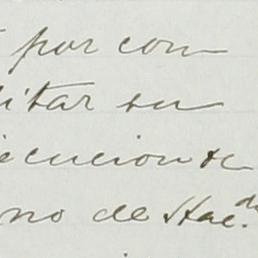 por con
litar su
jecucion &
no de Hac.da